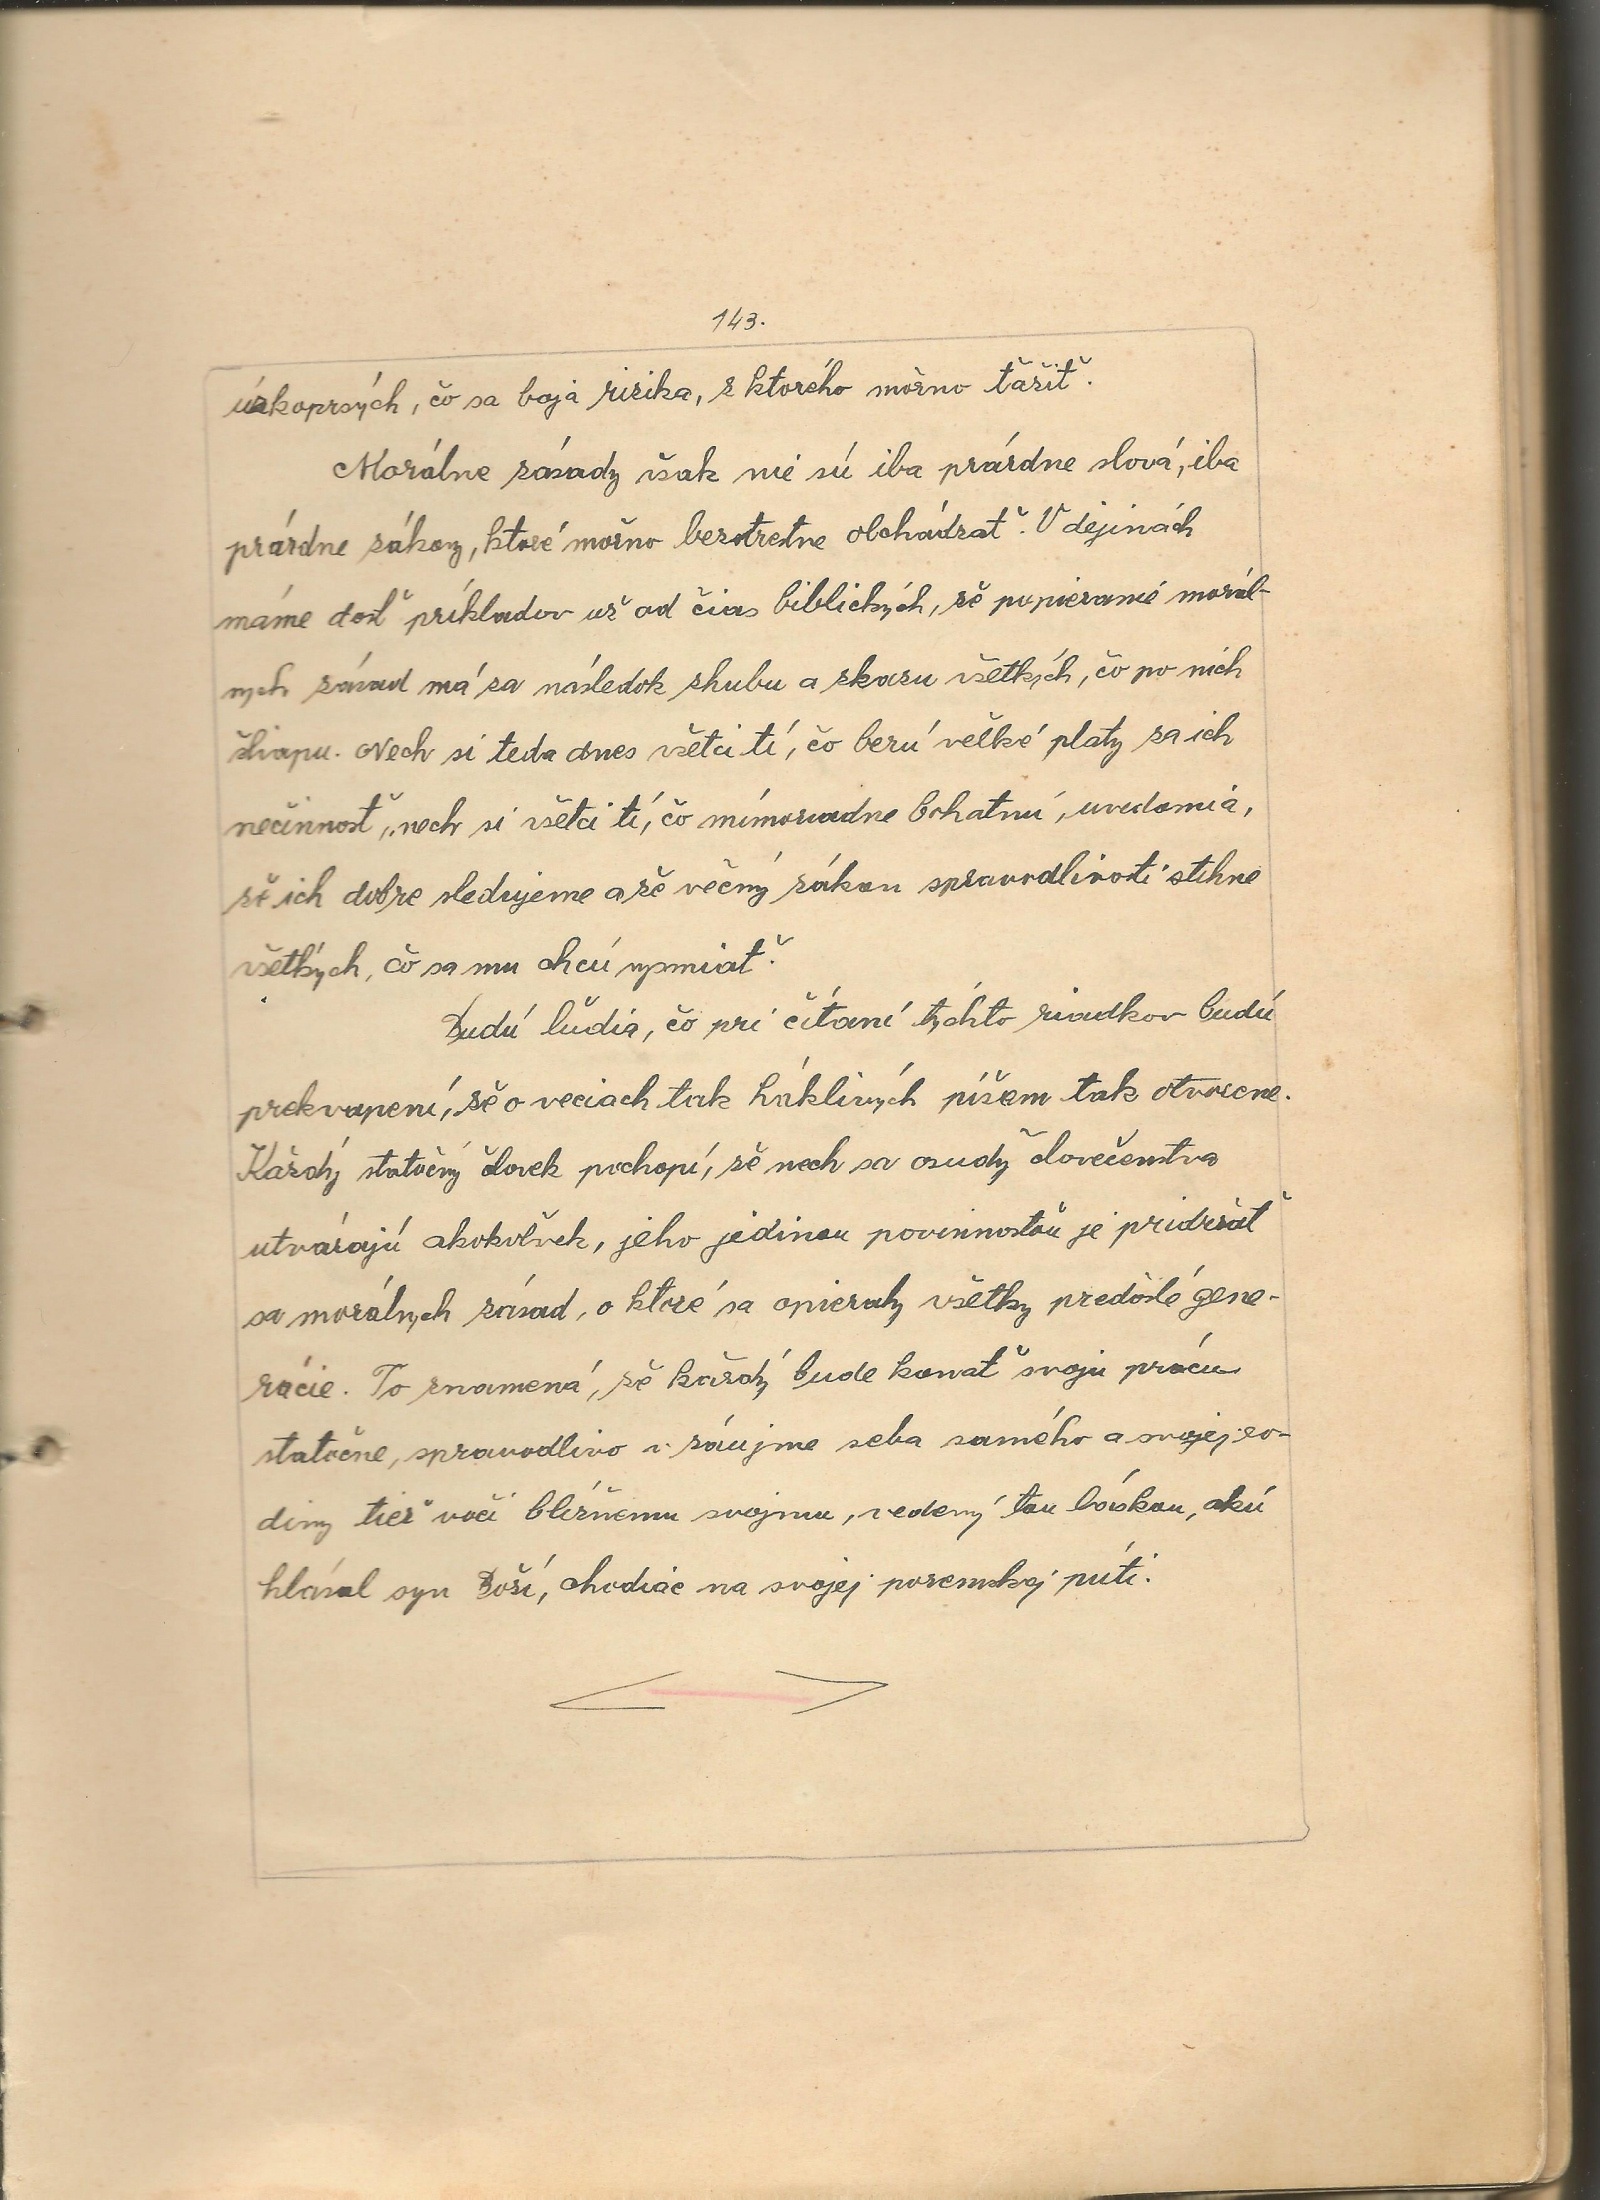 143.
úzkoprsých, čo sa boja rizika, z ktorého možno ťažiť.
Morálne zásady však nie sú iba prázdne slová, iba
prázdne zákony, ktoré možno beztrestne obchádzať. V dejinách
máme dosť príkladov už od čias biblických, že popieranie morál-
nych zásad má za následok zhubu a skazu všetkých, čo po nich
šliapu. Nech si teda dnes všetci tí, čo berú veľké platy za ich
nečinnosť, nech si všetci tí, čo mimoriadne bohatnú, uvedomia,
že ich dobre sledujeme a že večný zákon spravodlivosti stihne
všetkých, čo sa mu chcú vysmiať.
Budú ľudia, čo pri čítaní týchto riadkov budú
prekvapení, že o veciach tak háklivých píšem tak otvorene.
Každý statočný človek pochopí, že nech sa osudy človečenstva
utvárajú akokoľvek, jeho jedinou povinnosťou je pridŕžať
sa morálnych zásad, o ktoré sa opieraly všetky predošlé gene-
rácie. To znamená, že každý bude konať svoju prácu
statočne, spravodlivo v záujme seba samého a svojej ro-
diny tiež voči blížnemu svojmu, vedený tou láskou, akú
hlásal syn Boží, chodiac na svojej pozemskej púti.